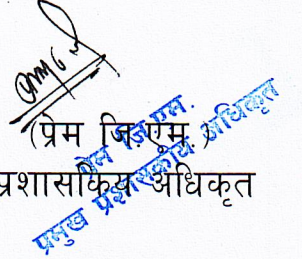 (प्रेम जि.एम.)
प्रशासकिय अधिकृत
प्रेम जि.एम.
प्रमुख प्रशासकीय अधिकृत